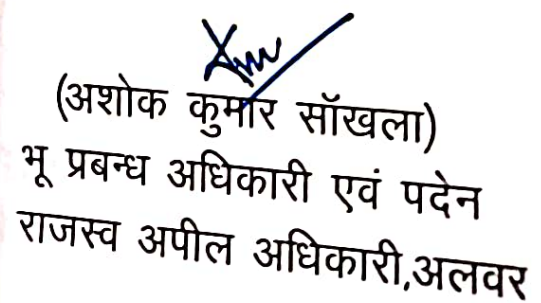 (अशोक कुमार सॉखला)
भू प्रबन्ध अधिकारी एवं पदेन
राजस्व अपील अधिकारी,अलवर